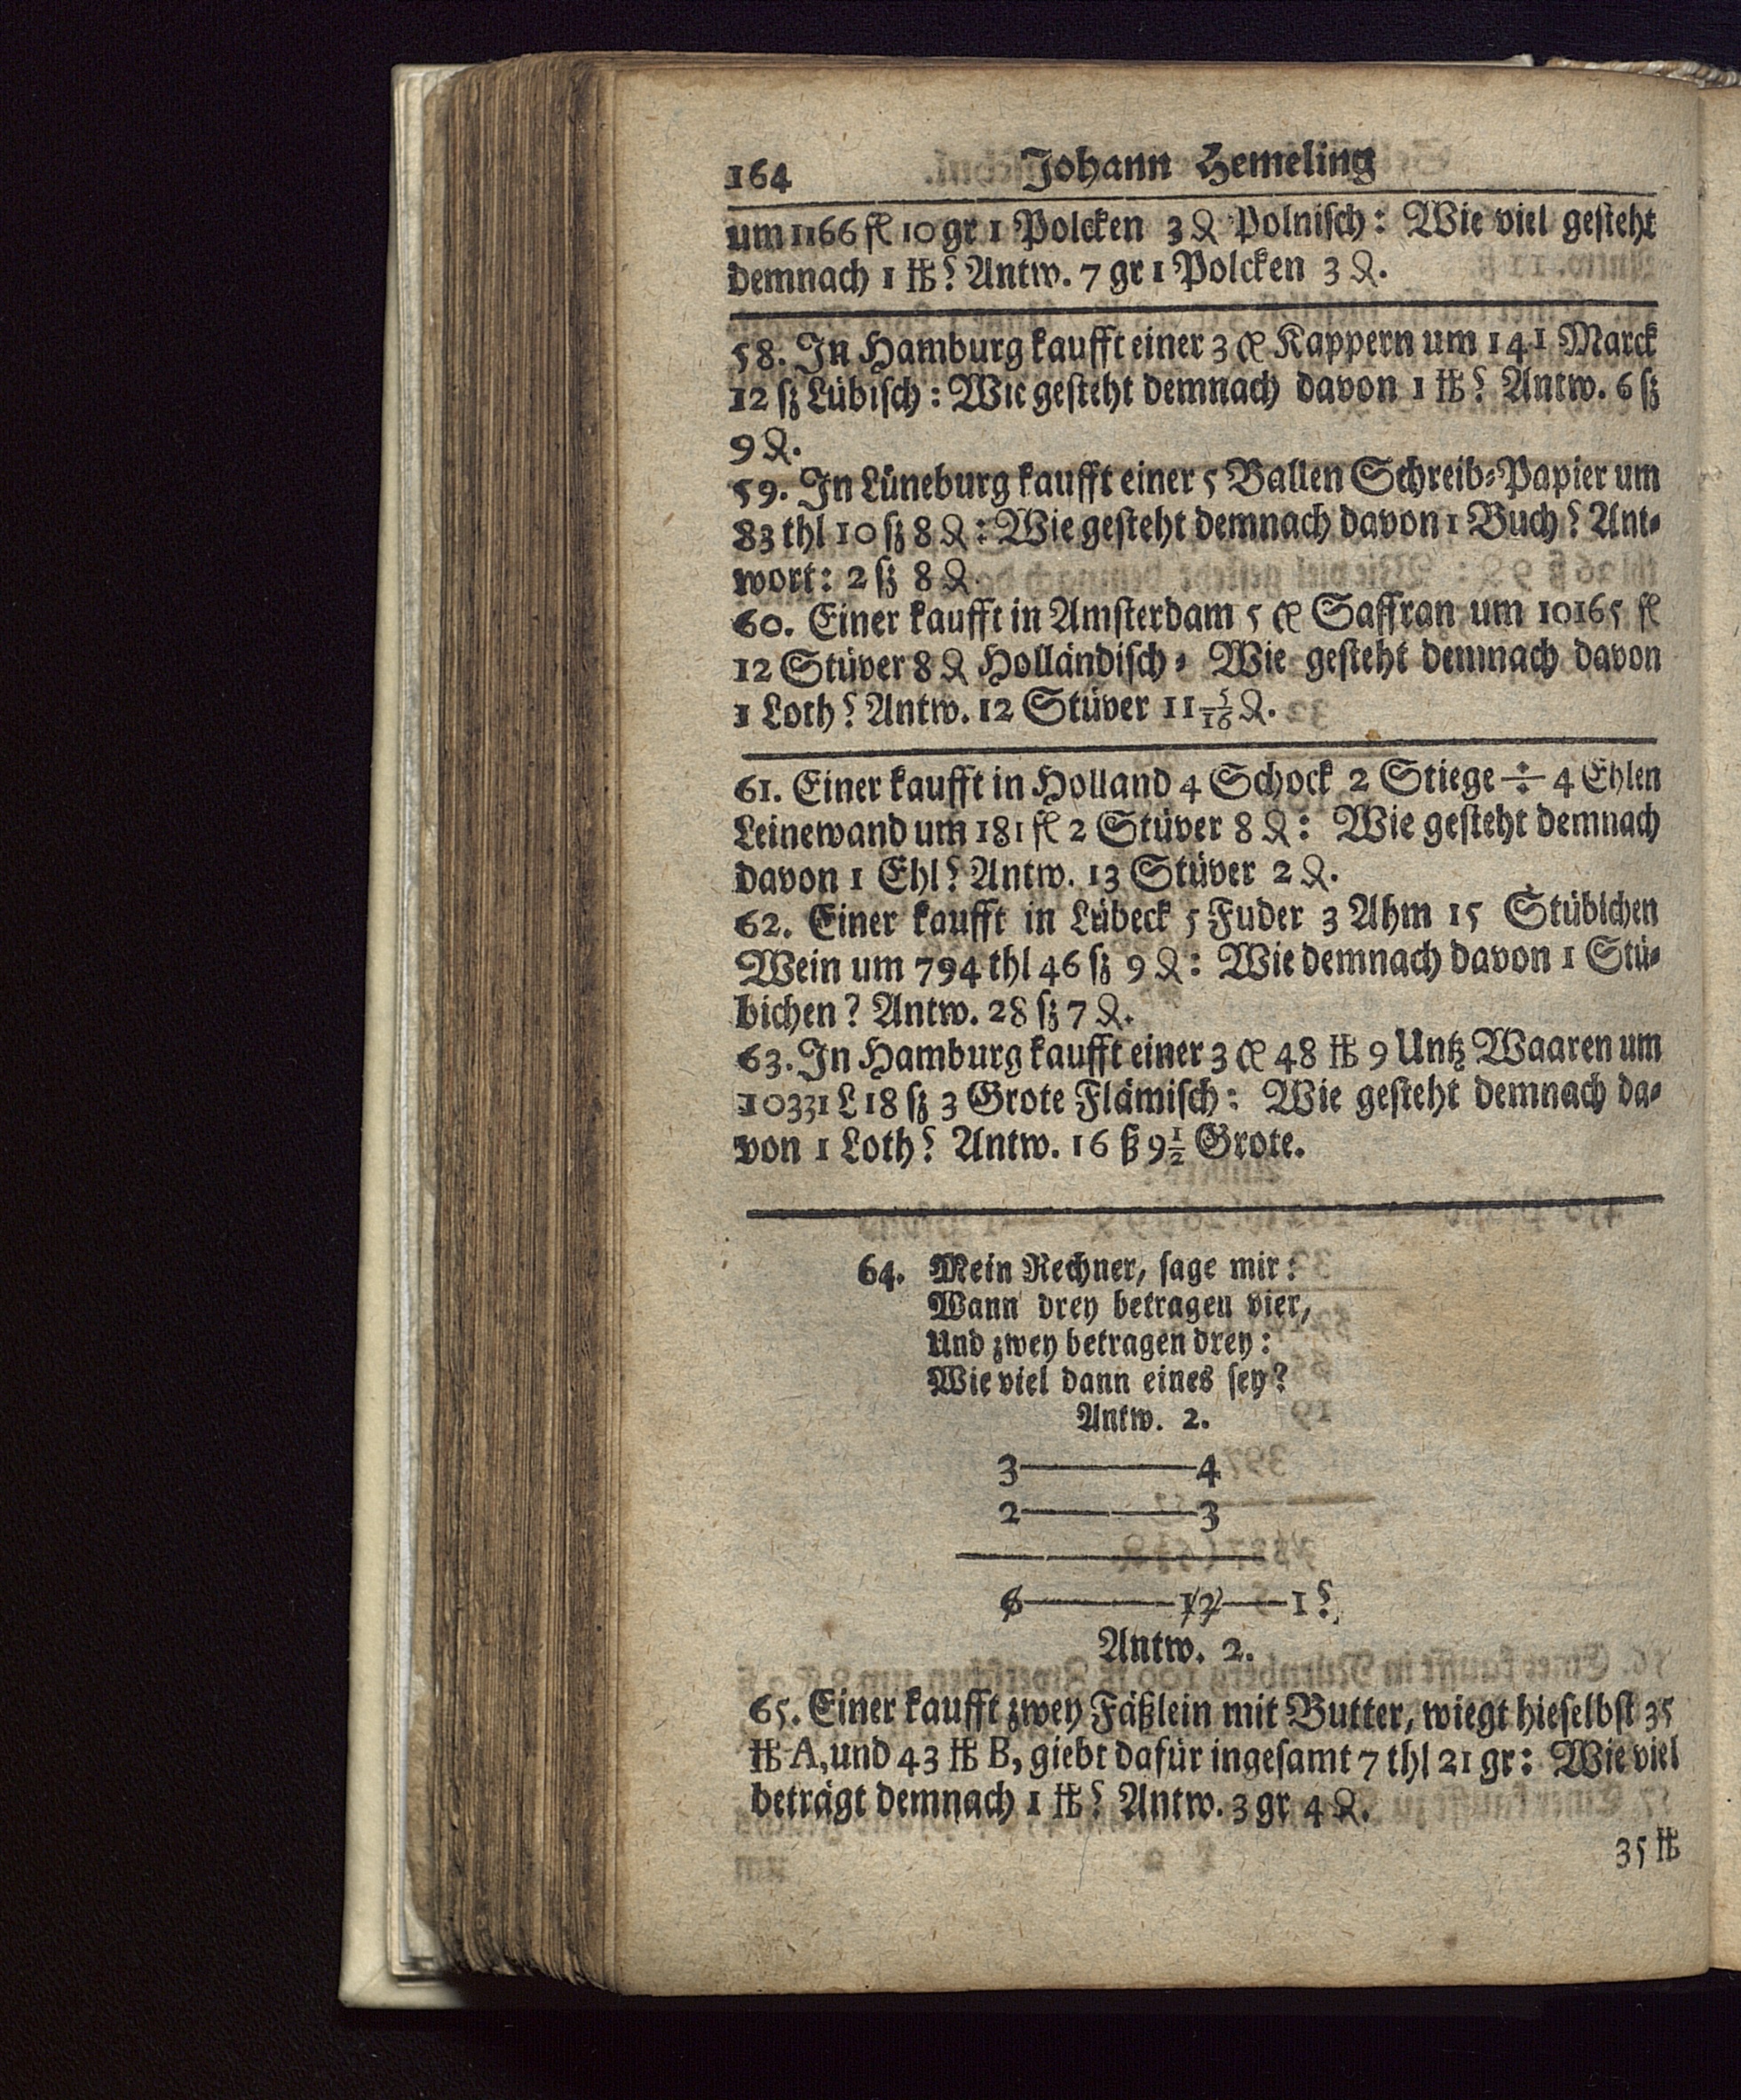 164 Johann Hemeling
um 1166 fl 10 gr 1 Polcken 3 ₰ Polnisch: Wie viel gesteht
demnach 1 ℔? Antw. 7 gr 1 Polcken 3 ₰.
58. In Hamburg kaufft einer 3 Kappern um 141 Marck
12 ß Lübisch: Wie gesteht demnach davon 1 ℔? Antw. 6 ß
9 ₰.
59. In Lüneburg kaufft einer 5 Ballen Schreib-Papier um
83 thl 10 ß 8 ₰: Wie gesteht demnach davon 1 Buch? Ant-
wort: 2 ß 8 ₰.
60. Einer kaufft in Amsterdam 5 Saffran um 10165 fl
12 Stüver 8 ₰ Holländisch: Wie gesteht demnach davon
1 Loth? Antw. 12 Stüver 11 5/16 ₰.
61. Einer kaufft in Holland 4 Schock 2 Stiege ÷ 4 Ehlen
Leinewand um 181 fl 2 Stüver 8 ₰: Wie gesteht demnach
davon 1 Ehl? Antw. 13 Stüver 2 ₰.
62. Einer kaufft in Lübeck 5 Fuder 3 Ahm 15 Stübichen
Wein um 794 thl 46 ß 9 ₰: Wie demnach davon 1 Stü-
bichen? Antw. 28 ß 7 ₰.
63. In Hamburg kaufft einer 3 48 ℔ 9 Untz Waaren um
10331 L 18 ß 3 Grote Flämisch: Wie gesteht demnach da-
von 1 Loth? Antw. 16 ß 9 1/2 Grote.
64. Mein Rechner, sage mir:
Wann drey betragen vier,
Und zwey betragen drey:
Wie viel dann eines sey?
Antw. 2.
3 — 4
2 — 3
6 — 12 — 1?
Antw. 2.
65. Einer kaufft zwey Fäßlein mit Butter, wiegt hieselbst 35
℔ A, und 43 ℔ B, giebt dafür ingesamt 7 thl 21 gr: Wie viel
beträgt demnach 1 ℔? Antw. 3 gr 4 ₰.
35 ℔